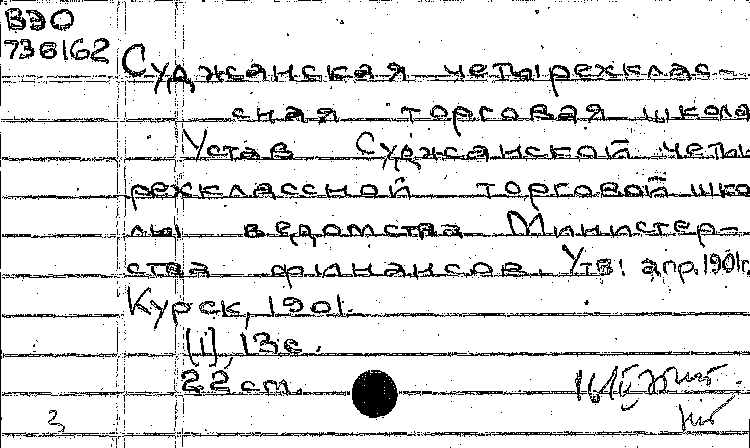 ВЭО
736162
Суджанская четырехклас-
сная торговая школа
Устав Суджанской четы
рехклассной торговой шко
лы ведомства Министер-
ства финансов. Утв. 1 апр. 1901г.
Курск, 1901.
[1], 13 с.
22 cm.
3